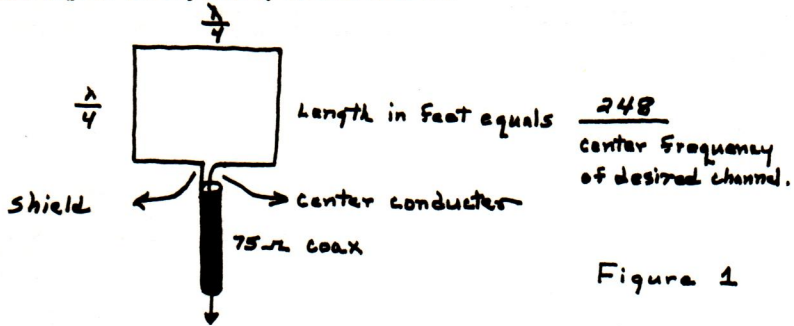 λ/4
λ/4
Length in feet equals 248
center frequency
of desired channel.
shield
center conducter
75Ω coax
Figure 1